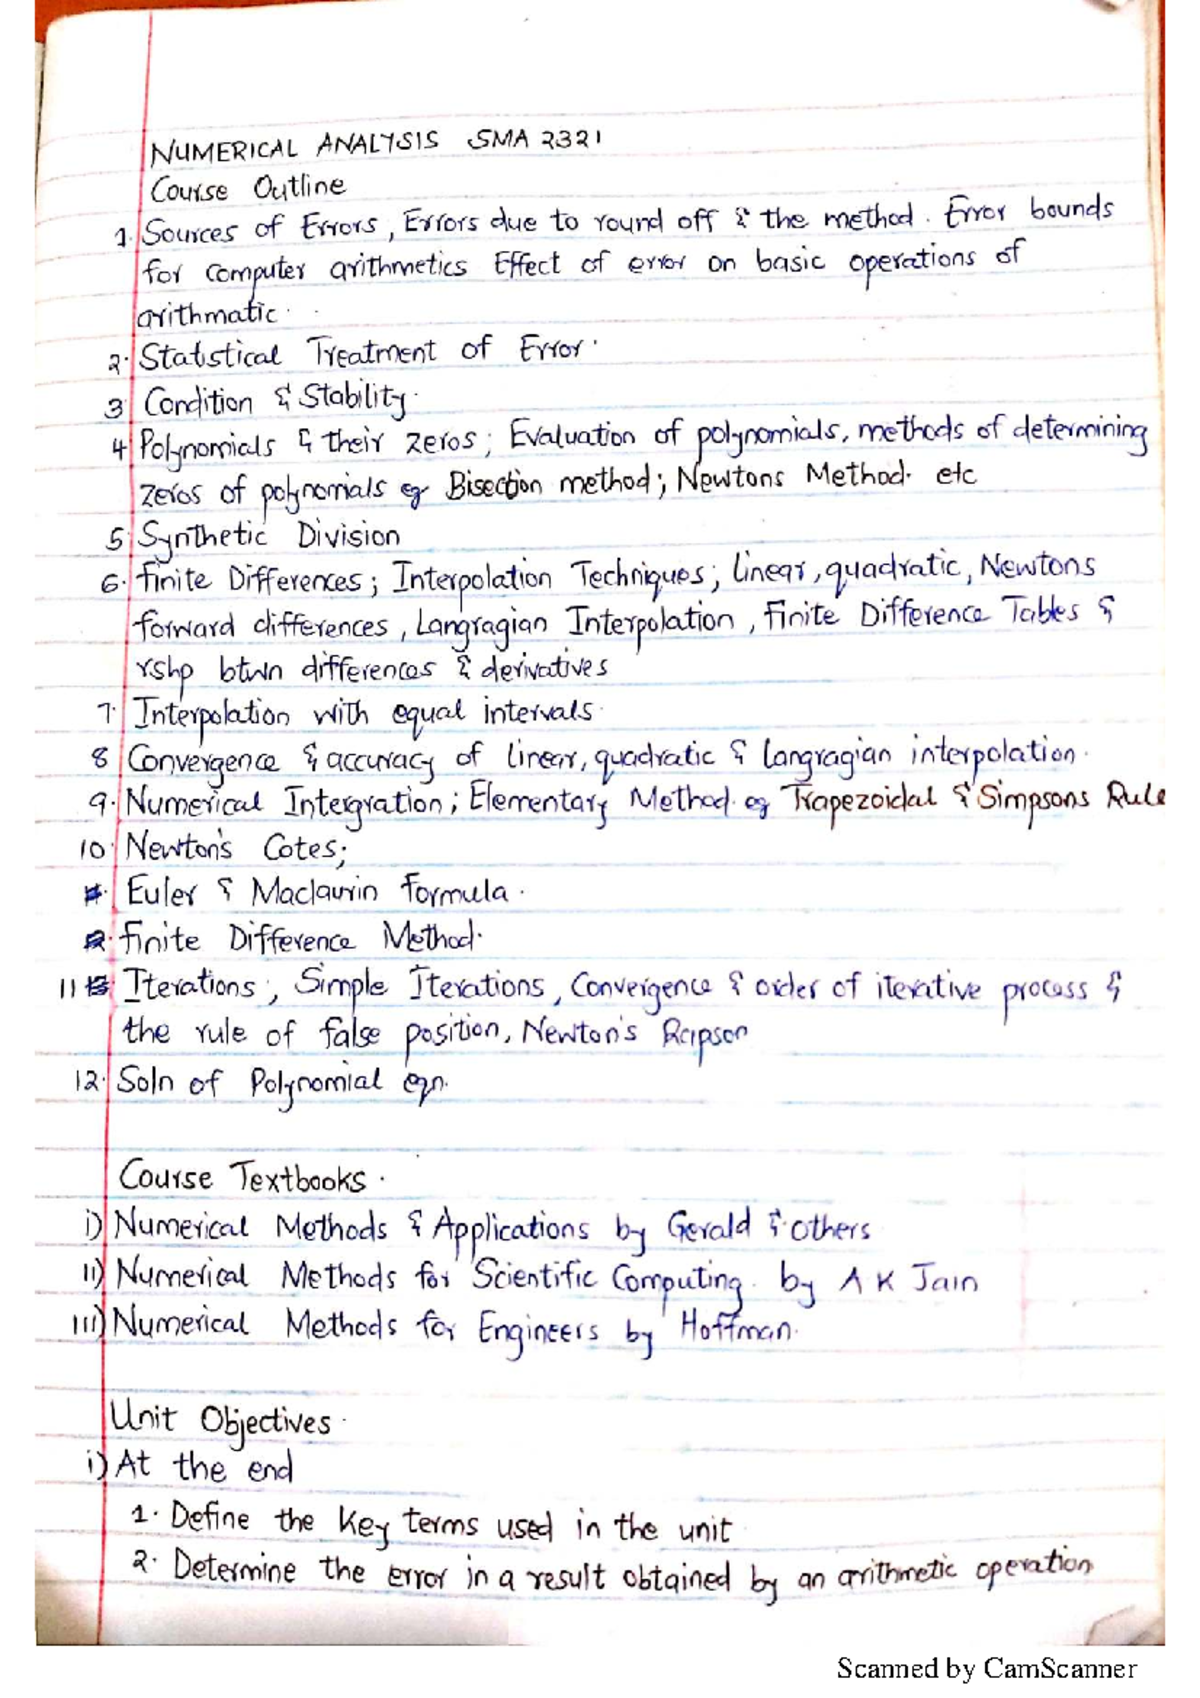 NUMERICAL ANALYSIS SMA 2321
Course Outline
1. Sources of Errors, Errors due to round off & the method. Error bounds
for computer arithmetics Effect of error on basic operations of
arithmatic.
2. Statistical Treatment of Error.
3 Condition & Stability.
4 Polynomials & their zeros; Evaluation of polynomials, methods of determining
zeros of polynomials eg Bisection method; Newtons Method. etc
5 Synthetic Division
6. Finite Differences; Interpolation Techniques; linear, quadratic, Newtons
forward differences, Langragian Interpolation, Finite Difference Tables &
rshp btwn differences & derivatives
7. Interpolation with equal intervals.
8 Convergence & accuracy of linear, quadratic & Langragian interpolation.
9. Numerical Intergration; Elementary Method. eg Trapezoidal & Simpsons Rule
10. Newton's Cotes;
Euler & Maclaurin Formula.
Finite Difference Method.
11 Iterations; Simple Iterations, Convergence & order of iterative process &
the rule of false position, Newton's Rapson
12. Soln of Polynomial eqn.
Course Textbooks.
i) Numerical Methods & Applications by Gerald & Others
ii) Numerical Methods for Scientific Computing. by A K Jain
iii) Numerical Methods for Engineers by Hoffman.
Unit Objectives.
i) At the end
1. Define the key terms used in the unit
2. Determine the error in a result obtained by an arithmetic operation
Scanned by CamScanner